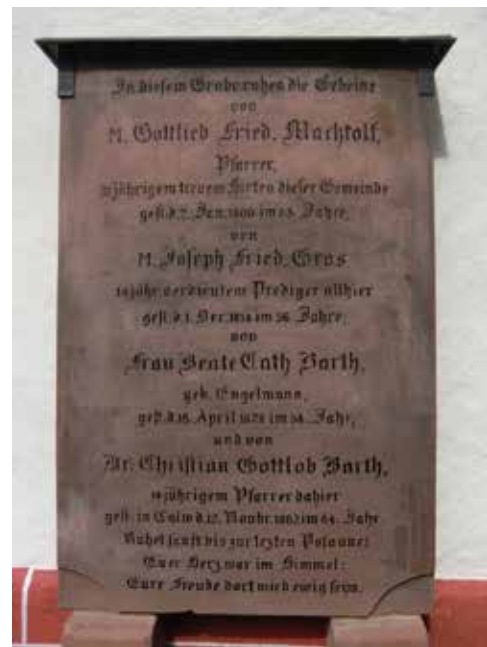 In diesem Grabe ruhen die Gebeine
von
M. Gottlieb Fried. Machtolf,
Pfarrer,
jährigem treuem Hirten dieser Gemeinde
gest. d. Jan. 1800 im Jahre;
von
M. Joseph Fried. Gros
jähr. verdientem Prediger allhier
gest. d. 1. Jahre;
von
Frau Beate Cath Barth,
geb. Engelmann,
gest. d. April im Jahr,
und von
Dr. Christian Gottlob Barth,
jährigem Pfarrer dahier
gest. in Calw d. 12. Novbr. 1862 im 64. Jahr
Ruhet sanft bis zur lezten Posaune!
Euer Herz war im Himmel:
Eure Freude dort wird ewig seyn.